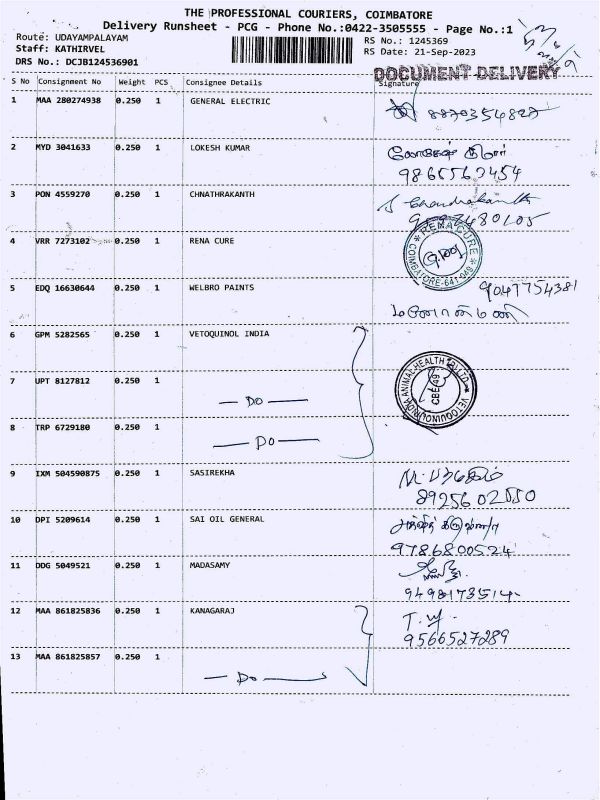 THE PROFESSIONAL COURIERS, COIMBATORE
Delivery Runsheet - PCG - Phone No.:0422-3505555 - Page No.:1
Route: UDAYAMPALAYAM
RS No.: 1245369
Staff: KATHIRVEL
RS Date: 21-Sep-2023
DRS No.: DCJB124536901
DOCUMENT DELIVERY
S No Consignment No Weight PCS Consignee Details Signature
1 MAA 280274938 0.250 1 GENERAL ELECTRIC
8870354827
2 MYD 3041633 0.250 1 LOKESH KUMAR லோகேஷ் குமார்
9865562454
3 PON 4559270 0.250 1 CHNATHRAKANTH
4 VRR 7273102 0.250 1 RENA CURE
RENA CURE
COIMBATORE-641 049
5 EDQ 16630644 0.250 1 WELBRO PAINTS 9047754381
மனோன்மணி
6 GPM 5282565 0.250 1 VETOQUINOL INDIA
7 UPT 8127812 0.250 1
— Do —
CBE-49
8 TRP 6729180 0.250 1
— Do —
9 IXM 504590875 0.250 1 SASIREKHA
10 DPI 5209614 0.250 1 SAI OIL GENERAL
9786800524
11 DDG 5049521 0.250 1 MADASAMY
12 MAA 861825836 0.250 1 KANAGARAJ
9566527289
13 MAA 861825857 0.250 1
— Do —